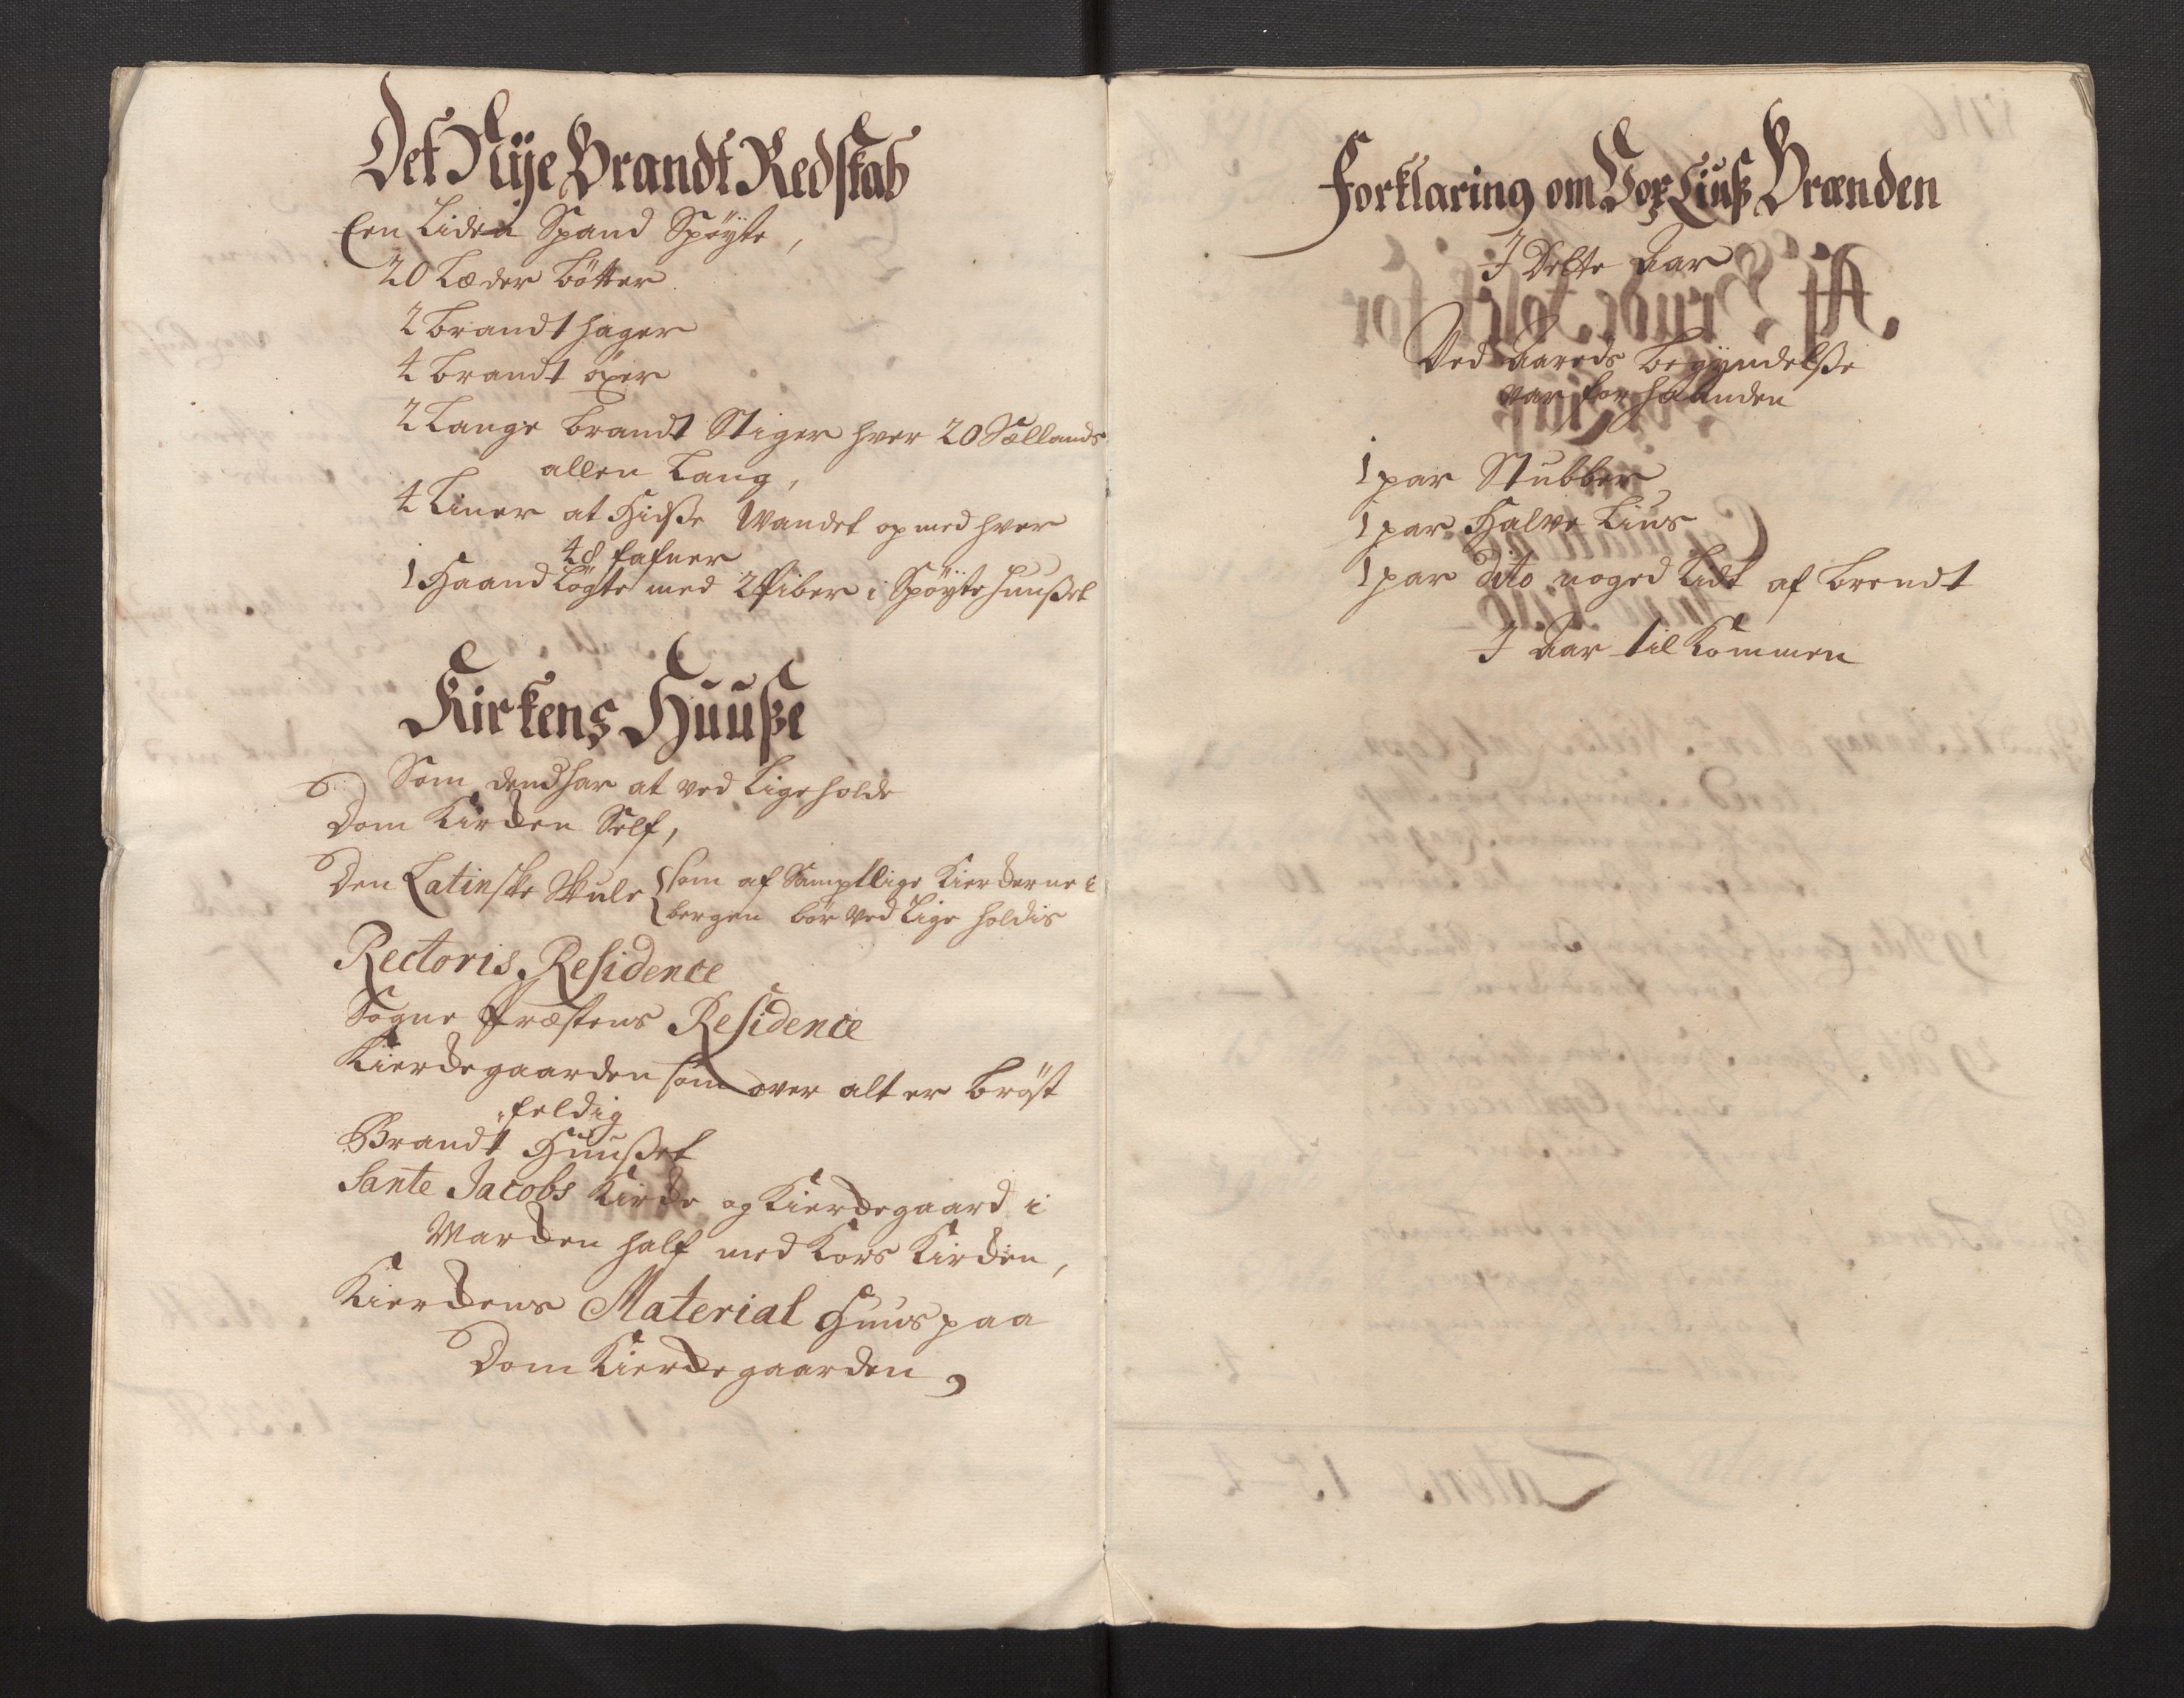 Det Nÿe Brandt Redskab
Een Liden Spand Spöÿte,
20 Læder Bötter
2 Brandt hager
4 Brandt öxer
2 Lange Brandt Stiger hver 20 Sællands
allen Lang,
4 Liner at Hidsse Wandet op med hver
48 fafner
1 Haand Lögte med 2 Piber i Spöÿte huusset
Kirkens Huuße
Som dend har at ved Lige holde
Dom Kircken Self,
Den Latinske Skule som af Samptlige Kierckerne i
bergen bör ved Lige holdis
Rectoris Residence
Sogne Præstens Residence
Kierckegaarden som over alt er bröst
feldig
Brandt Huusset
Sante Jacobs Kircke og Kierckegaard i
Marcken half med Kors Kircken,
Kierckens Material Huus paa
Dom Kierckegaarden,
Forklaring om Vox Liuß Brænden
I Dette Aar
Ved Aareds Begÿndelsse
var for haanden
1 par Stubber
1 par Halve Lius
1 par dito noged Lidt af brendt
I Aar til Kommen